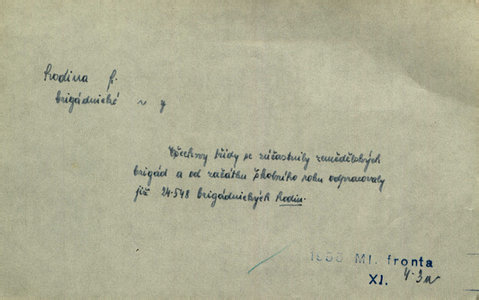 hodina f.
brigádnické v y
Všechny třídy se zúčastnily zemědělských
brigád a od začátku školního roku odpracovaly
již 24.548 brigádnických hodin.
Ml. fronta
XI.